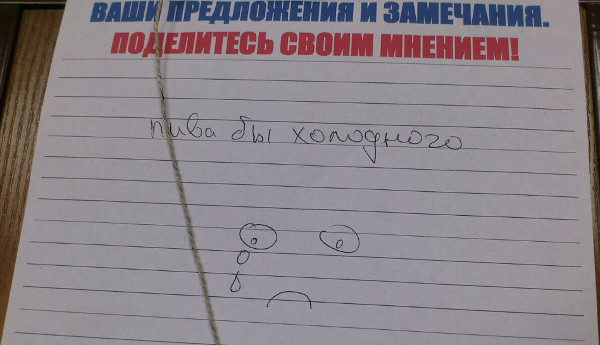 ВАШИ ПРЕДЛОЖЕНИЯ И ЗАМЕЧАНИЯ.
ПОДЕЛИТЕСЬ СВОИМ МНЕНИЕМ!
пива бы холодного